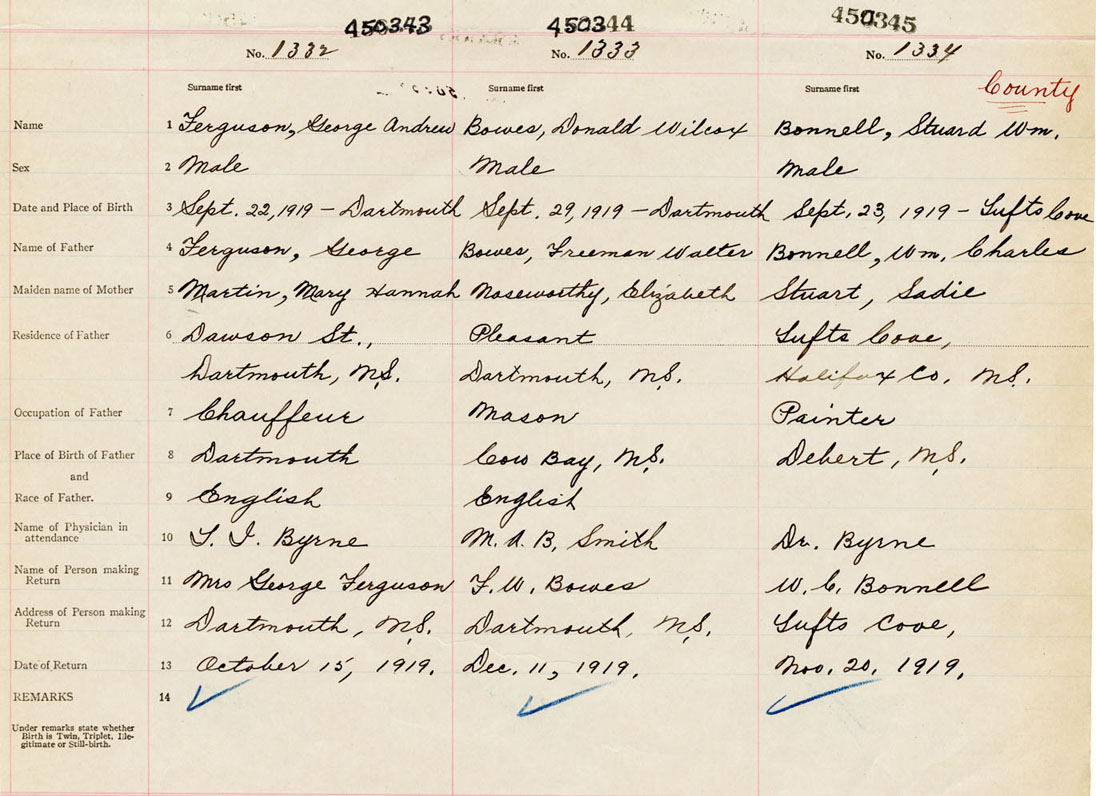 450343 450344 450345
No. 1332 No. 1333 No. 1334
Surname first Surname first Surname first County
Name 1 Ferguson, George Andrew Bowes, Donald Wilcox Bonnell, Stuard Wm.
Sex 2 Male Male Male
Date and Place of Birth 3 Sept. 22, 1919 - Dartmouth Sept. 29, 1919 - Dartmouth Sept. 23, 1919 - Tufts Cove
Name of Father 4 Ferguson, George Bowes, Freeman Walter Bonnell, Wm. Charles
Maiden name of Mother 5 Martin, Mary Hannah Noseworthy, Elizabeth Stuart, Sadie
Residence of Father 6 Dawson St., Pleasant Tufts Cove,
Dartmouth, N.S. Dartmouth, N.S. Halifax Co. N.S.
Occupation of Father 7 Chauffeur Mason Painter
Place of Birth of Father 8 Dartmouth Cow Bay, N.S. Debert, N.S.
and
Race of Father. 9 English English
Name of Physician in
attendance 10 T. I. Byrne M. A. B. Smith Dr. Byrne
Name of Person making
Return 11 Mrs George Ferguson F. W. Bowes W. C. Bonnell
Address of Person making
Return 12 Dartmouth, N.S. Dartmouth, N.S. Tufts Cove,
Date of Return 13 October 15, 1919. Dec. 11, 1919. Nov. 20, 1919.
REMARKS 14
Under remarks state whether
Birth is Twin, Triplet, Ille-
gitimate or Still-birth.